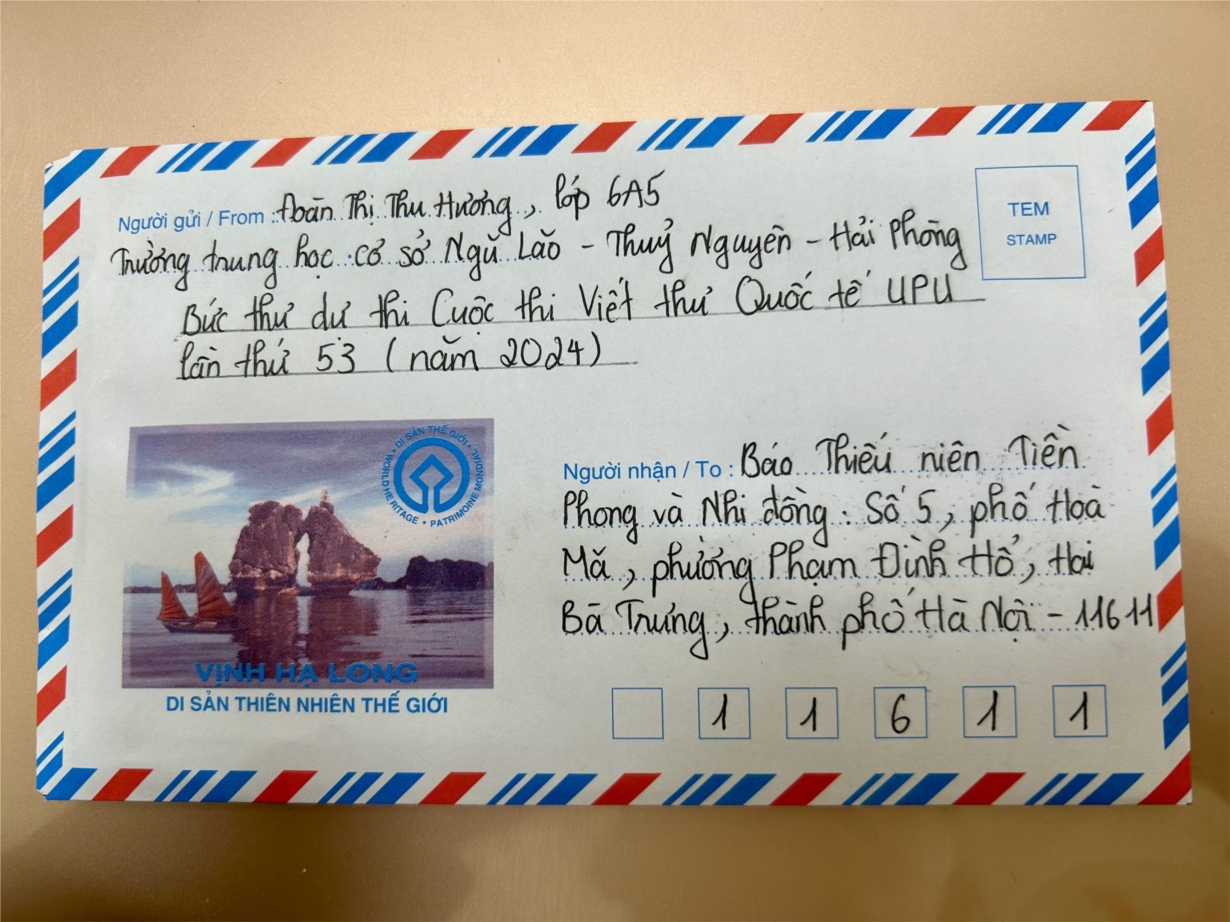 Người gửi / From : Đoàn Thị Thu Hương, lớp 6A5
Trường trung học cơ sở Ngũ Lão - Thuỷ Nguyên - Hải Phòng
Bức thư dự thi Cuộc thi Viết thư Quốc tế UPU
lần thứ 53 (năm 2024)
TEM
STAMP
DI SẢN THẾ GIỚI • WORLD HERITAGE • PATRIMOINE MONDIAL
VỊNH HẠ LONG
DI SẢN THIÊN NHIÊN THẾ GIỚI
Người nhận / To : Báo Thiếu niên Tiền
Phong và Nhi đồng : Số 5, phố Hoà
Mã, phường Phạm Đình Hổ, Hai
Bà Trưng, thành phố Hà Nội - 11611
1 1 6 1 1